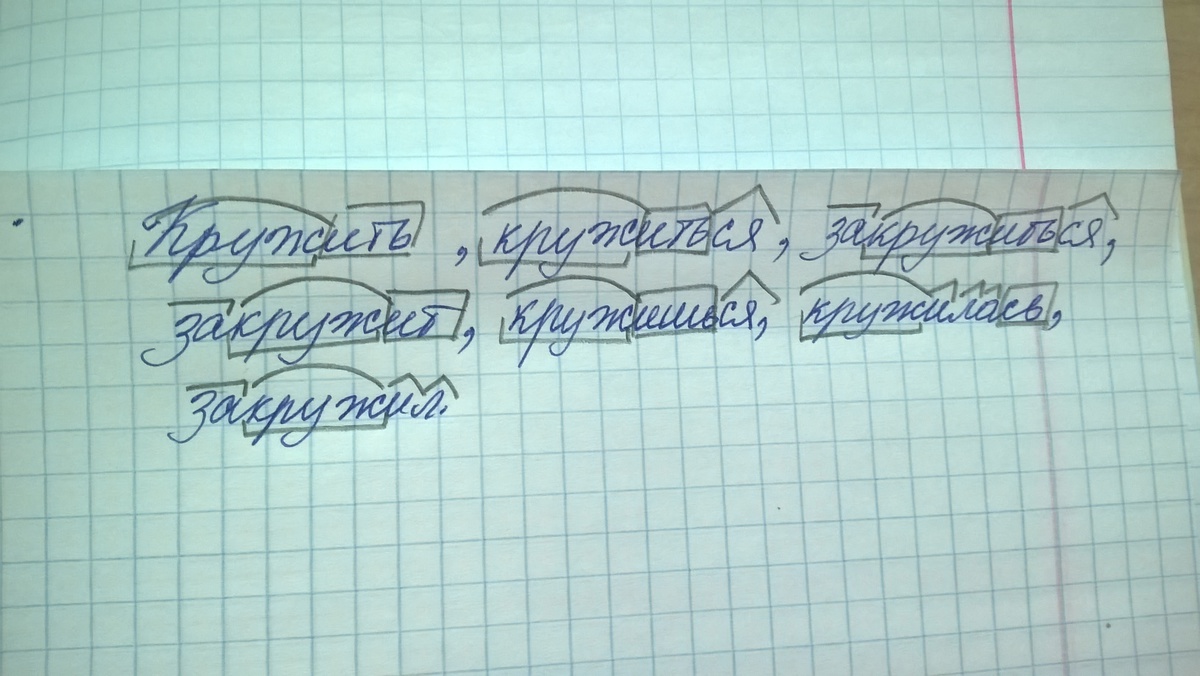 Кружить, кружиться, закружиться,
закружит, кружишься, кружилась,
закружил.